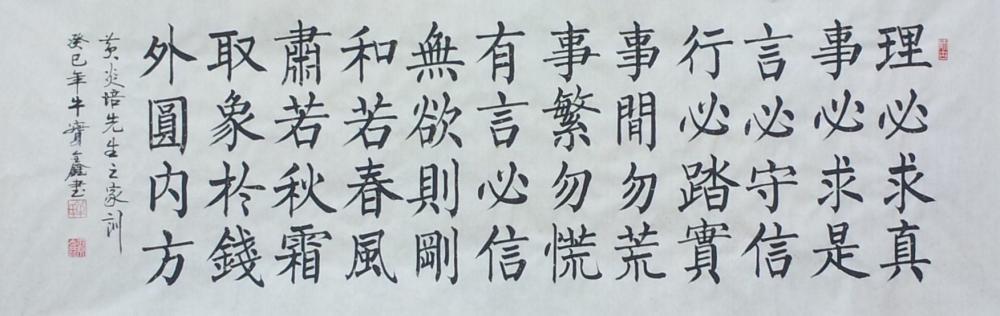 理必求真
事必求是
言必守信
行必踏實
事閒勿荒
事繁勿慌
有言必信
無欲則剛
和若春風
肅若秋霜
取象於錢
外圓內方
黄炎培先生之家训
癸巳年牛寶鑫書